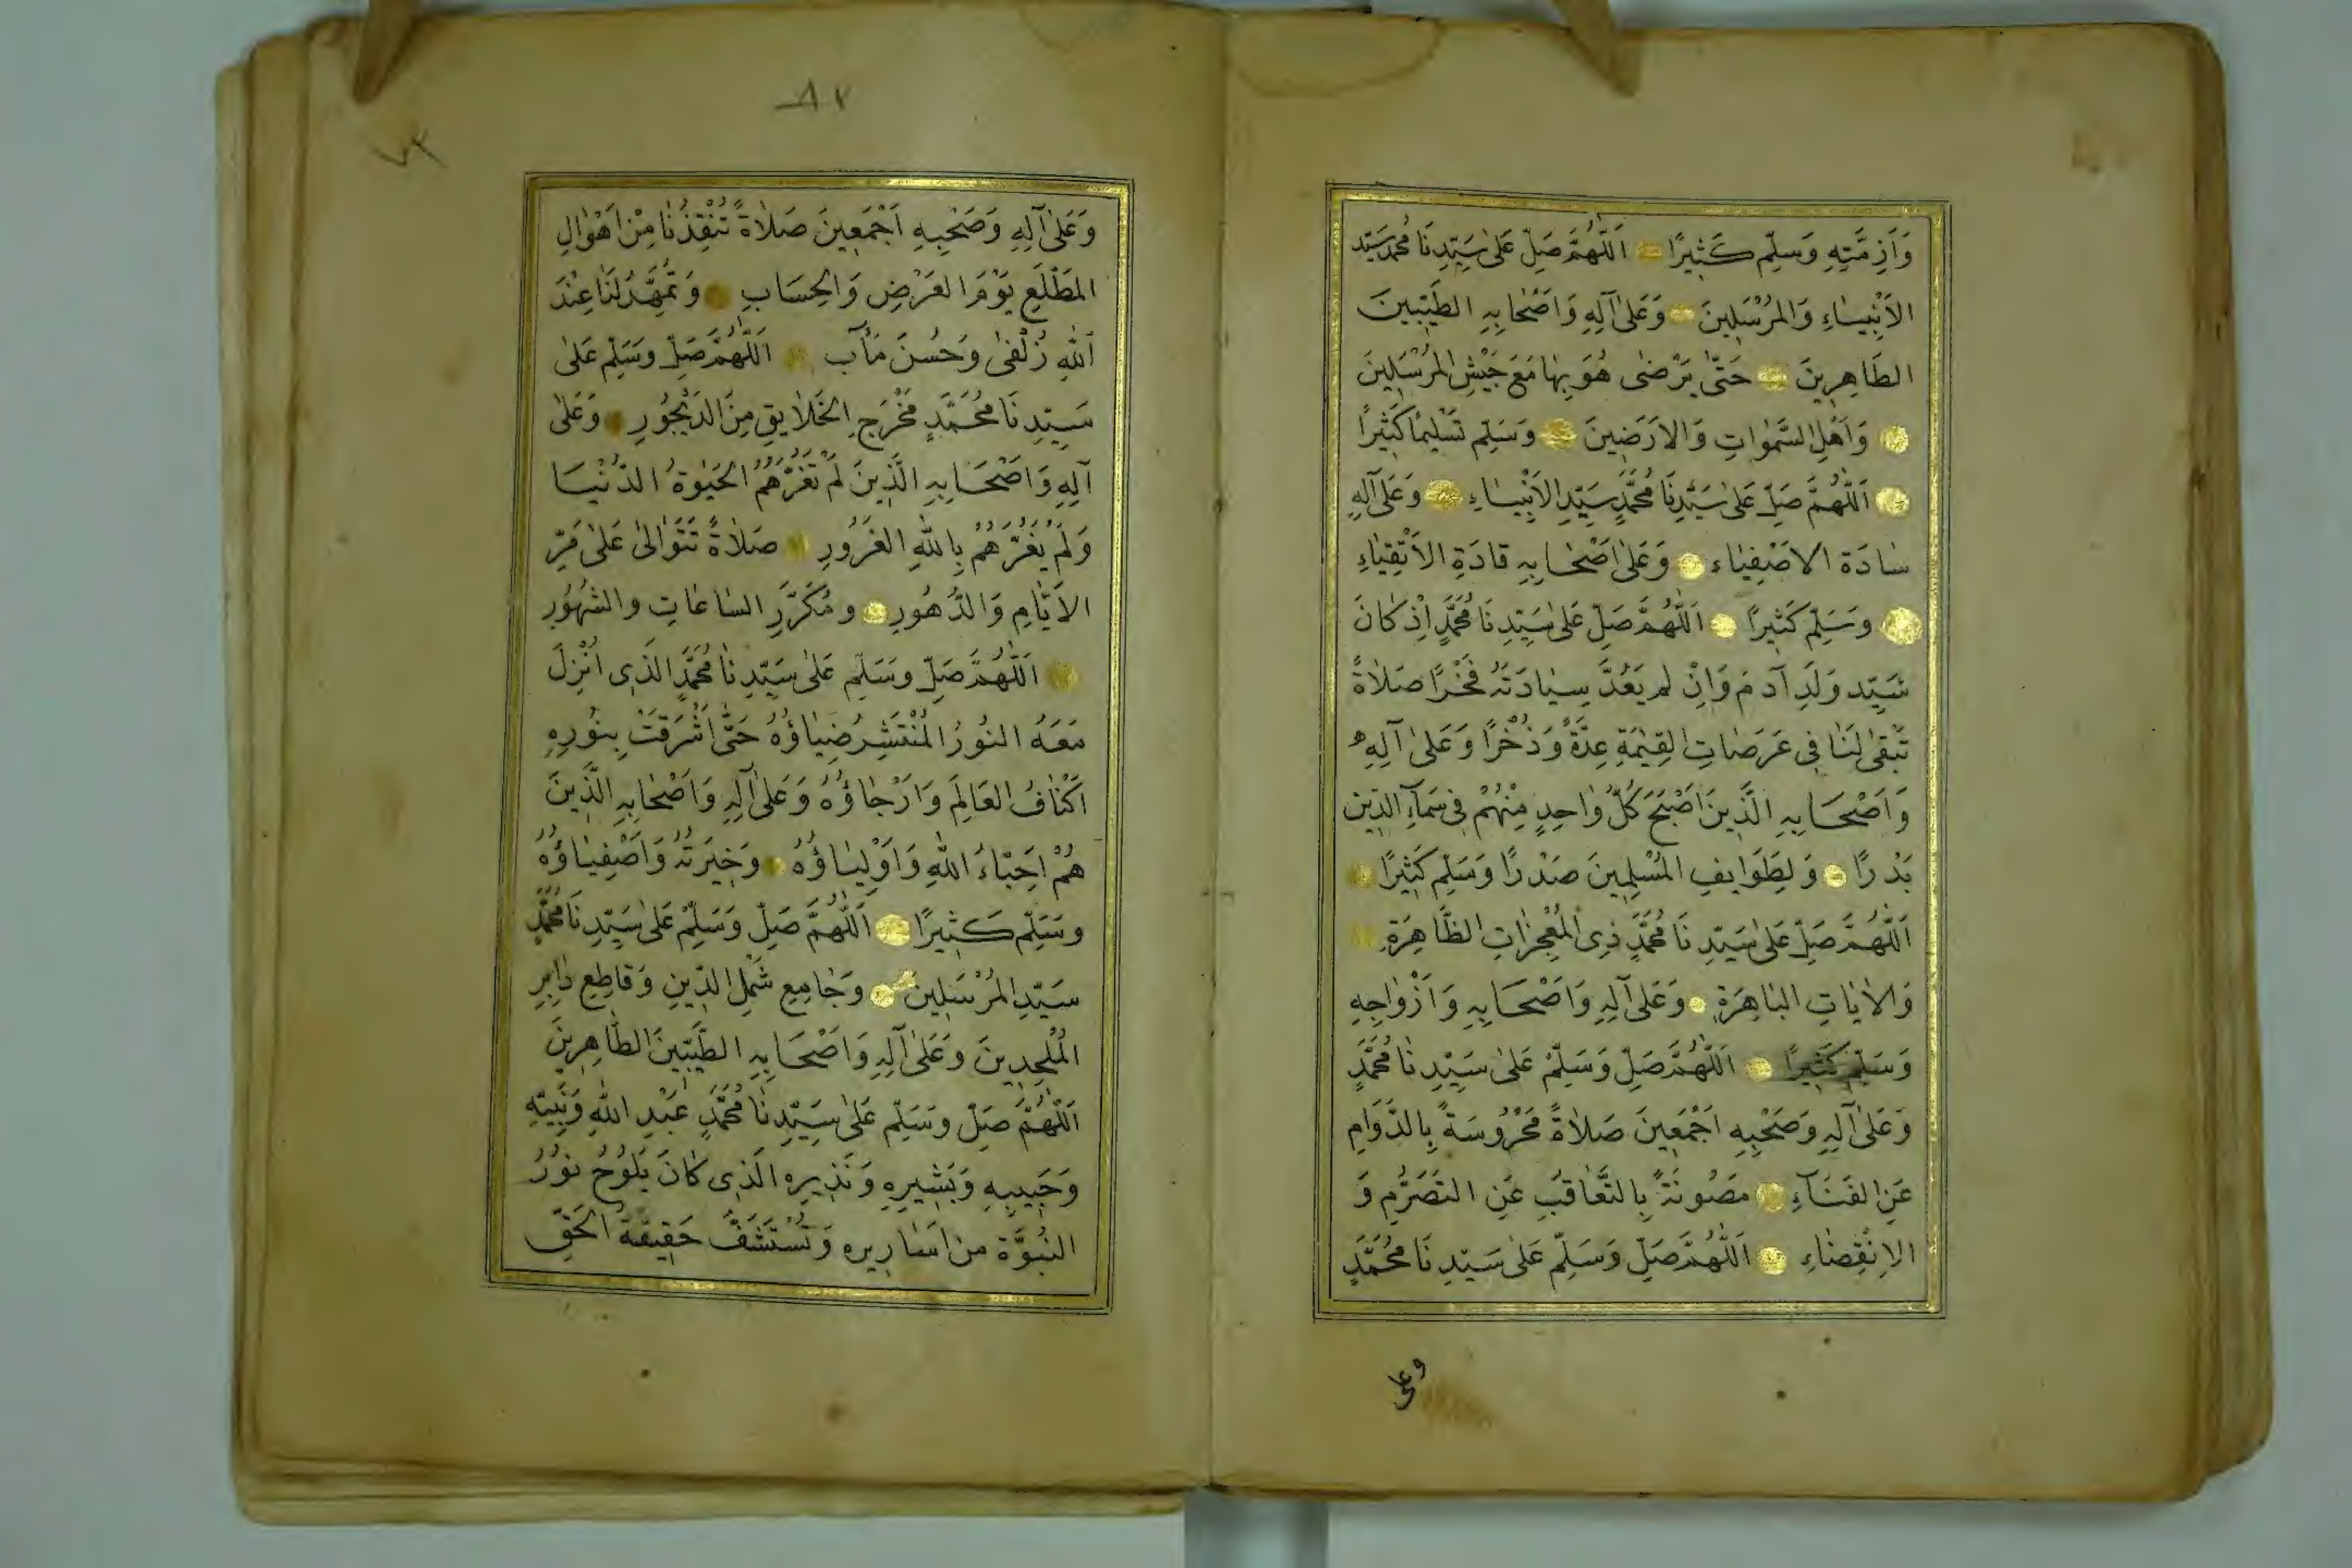 وَاَزِمَّتِهِ وَسَلِّم كَثِيرًا اَللّٰهُمَّ صَلِّ عَلىٰ سَيِّدِنَا مُحَمَّد سَيِّد
الاَنْبِيٰاءِ وَالمُرْسَلِينَ وَعَلىٰ آلِهِ وَاَصْحٰابِهِ الطَيِّبِينَ
الطَاهِرِينَ حَتّٰى يَرْضىٰ هُوَ بِهٰا مَعَ جَيْشِ المُرْسَلِينَ
وَاَهْلِ السَّمٰوَاتِ وَالاَرَضِينَ وَسَلِّم تَسْلِيمًا كَثِيرًا
اَللّٰهُمَّ صَلِّ عَلىٰ سَيِّدِنَا مُحَمَّدٍ سَيِّدِ الاَنْبِيٰاءِ وَعَلىٰ آلِهِ
سٰادَة الاَصْفِيٰاء وَعَلىٰ اَصْحٰابِهِ قادَةِ الاَتْقِيٰاءِ
وَسَلِّم كَثِيرًا اَللّٰهُمَّ صَلِّ عَلىٰ سَيِّدِنَا مُحَمَّدٍ اِذْ كٰانَ
سَيِّد وَلَدِ آدَمَ وَاِنْ لم يَعُدَّ سِيٰادَتَهُ فَخْرًا صَلاٰةً
تَبْقىٰ لَنَا فِى عَرَصٰاتِ القِيٰمَةِ عِدَّةً وَذُخْرًا وَعَلىٰ آلِهِ
وَاَصْحَابِهِ الَّذِينَ اَصْبَحَ كُلُّ وٰاحِدٍ مِنْهُمْ فِى سَمَآءِ الدِّين
بَدْرًا وَلِطَوَايِفِ المُسْلِمِينَ صَدْرًا وَسَلِّم كَثِيرًا
اَللّٰهُمَّ صَلِّ عَلىٰ سَيِّدِنَا مُحَمَّدٍ ذِى المُعْجِزٰاتِ الظَّاهِرَةِ
وَالاٰيٰاتِ البٰاهِرَةِ وَعَلىٰ آلِهِ وَاَصْحَابِهِ وَاَزْوٰاجِهِ
وَسَلِّم كَثِيرًا اَللّٰهُمَّ صَلِّ وَسَلِّمْ عَلىٰ سَيِّدِنٰا مُحَمَّدٍ
وَعَلىٰ آلِهِ وَصَحْبِهِ اَجْمَعِينَ صَلاٰةً مَحْرُوسَةً بِالدَّوَامِ
عَنِ الفَنَآءِ مَصُونَةً بِالتَّعٰاقُبِ عَنِ التَصَرُّمِ وَ
الاِنْقِضٰاءِ اَللّٰهُمَّ صَلِّ وَسَلِّم عَلىٰ سَيِّدِنَا مُحَمَّدٍ
وعلى
٨٢
وَعَلىٰ آلِهِ وَصَحْبِهِ اَجْمَعِينَ صَلاٰةً تُنْقِذُنٰا مِنْ اَهْوٰالِ
المَطْلَعِ يَوْمَ العَرْضِ وَالحِسَابِ وَتُمَهِّدُ لَنَا عِنْدَ
اَللهِ زُلْفىٰ وَحُسْنَ مَأٓب اَللّٰهُمَّ صَلِّ وَسَلِّم عَلىٰ
سَيِّدِنَا مُحَمَّدٍ مَخْرَجِ الخَلاٰيِقِ مِنَ الدَيْجُورِ وَعَلىٰ
آلِهِ وَاَصْحَابِهِ الَّذِينَ لَمْ تَغُرَّهُمُ الحَيٰوةُ الدُّنْيَا
وَلَمْ يَغُرَّهُمْ بِاللهِ الغَرُورِ صَلاٰةً تَتَوٰالىٰ عَلىٰ مَرِّ
الاَيّٰامِ وَالدُّهُورِ وَمُكَرَّرِ السٰاعٰاتِ وَالشُهُورِ
اَللّٰهُمَّ صَلِّ وَسَلِّم عَلىٰ سَيِّدِنٰا مُحَمَّدٍ الَذِى اُنْزِلَ
مَعَهُ النُورُ المُنْتَشِرُ ضِيٰاؤُهُ حَتّٰى اَشْرَقَتْ بِنُورِهِ
اَكْنٰافُ العَالَمِ وَاَرْجٰاؤُهُ وَعَلىٰ آلِهِ وَاَصْحٰابِهِ الَّذِينَ
هُمْ اَحِبّٰاءُ اللهِ وَاَوْلِيٰاؤُهُ وَخِيَرَتُهُ وَاَصْفِيٰاؤُهُ
وَسَلِّم كَثِيرًا اَللّٰهُمَّ صَلِّ وَسَلِّمْ عَلىٰ سَيِّدِنَا مُحَمَّدٍ
سَيِّدِ المُرْسَلِينَ وَجٰامِعِ شَمْلِ الدِّينِ وَقٰاطِعِ دٰابِرِ
المُلْحِدِينَ وَعَلىٰ آلِهِ وَاَصْحَابِهِ الطَيِّبِينَ الطّٰاهِرِينَ
اَللّٰهُمَّ صَلِّ وَسَلِّم عَلىٰ سَيِّدِنٰا مُحَمَّدٍ عَبْدِ اللهِ وَنَبِيِّهِ
وَحَبِيبِهِ وَبَشِيرِهِ وَنَذِيرِهِ الَذِى كٰانَ يَلُوحُ نُورُ
النُبُوَّة مِن اَسٰارِيرِهِ وَتُسْتَشَفُّ حَقِيقَةُ الحَقِّ